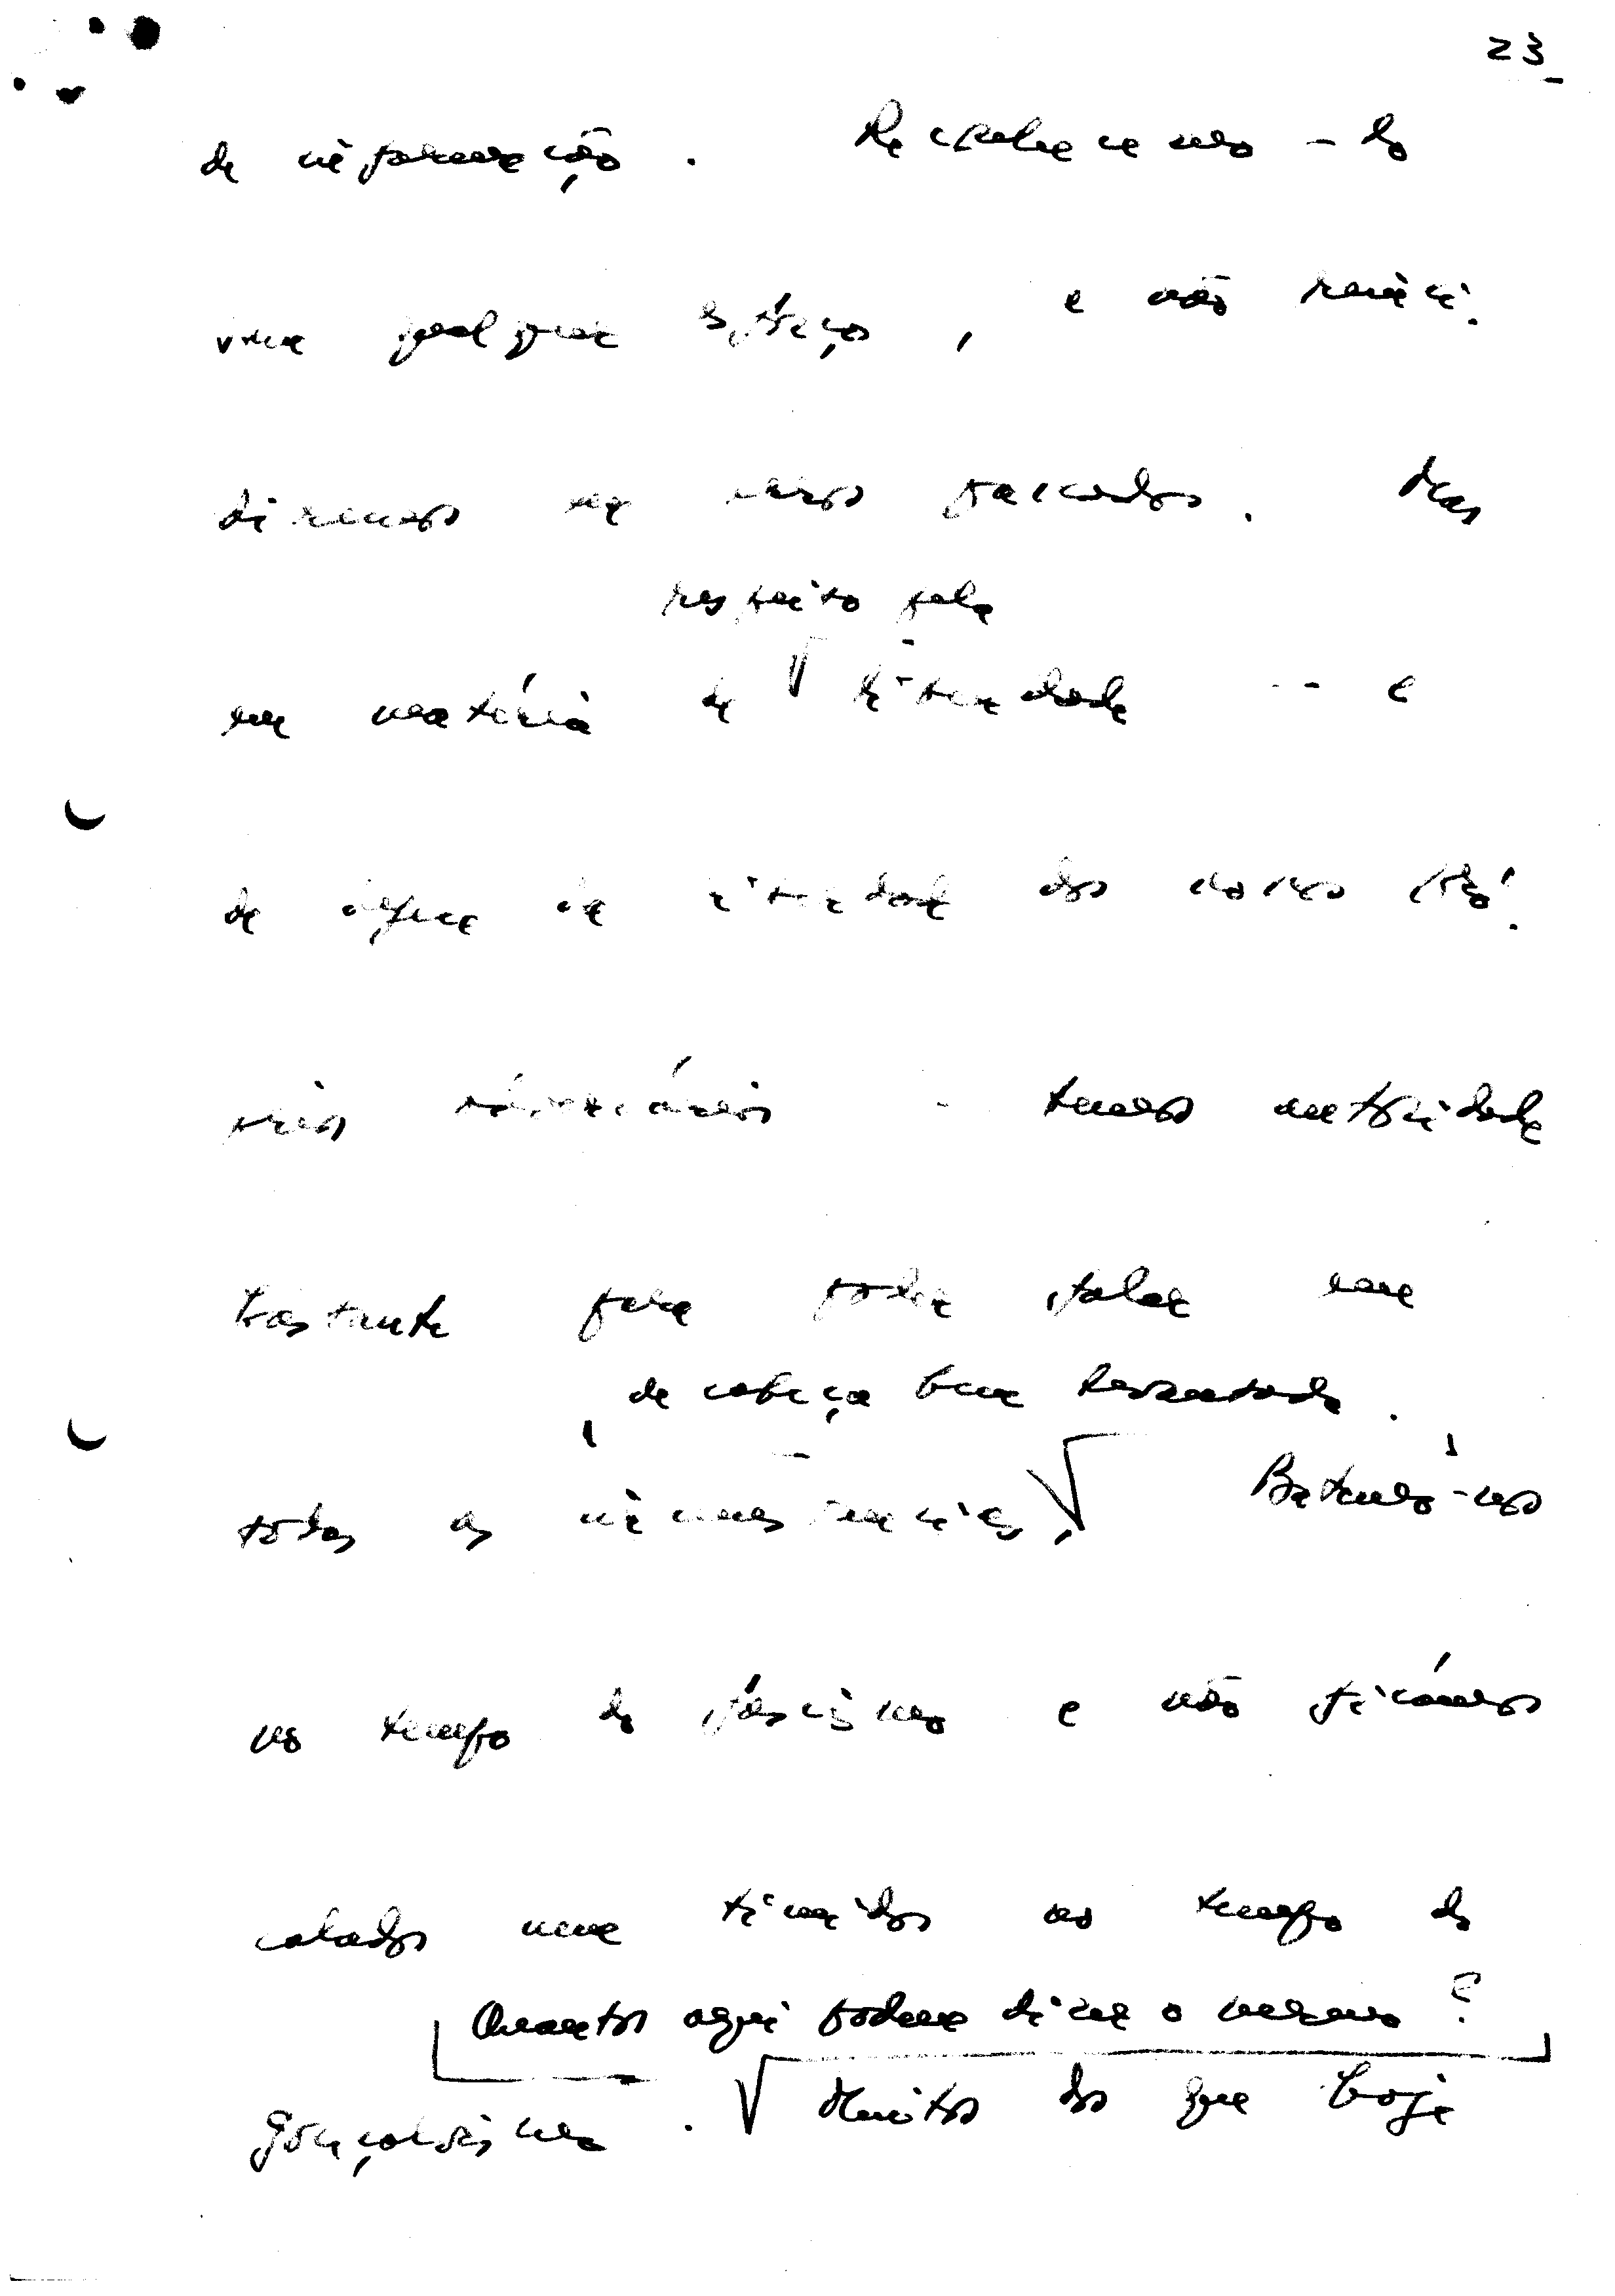 23
de informação. Reconhecemo-lo
sem qualquer esforço, e não reinci-
diremos nos erros passados. Mas
respeito pela
em matéria de liberdade - e
de defesa da liberdade dos nossos
adversários - temos autoridade
bastante para poder falar em
de cabeça bem levantada.
todas as circunstâncias, Batemo-nos
no tempo do fascismo e não ficámos
calados nem tímidos no tempo do
Quantos aqui podem dizer o mesmo?
gonçalvismo. Muitos dos que hoje